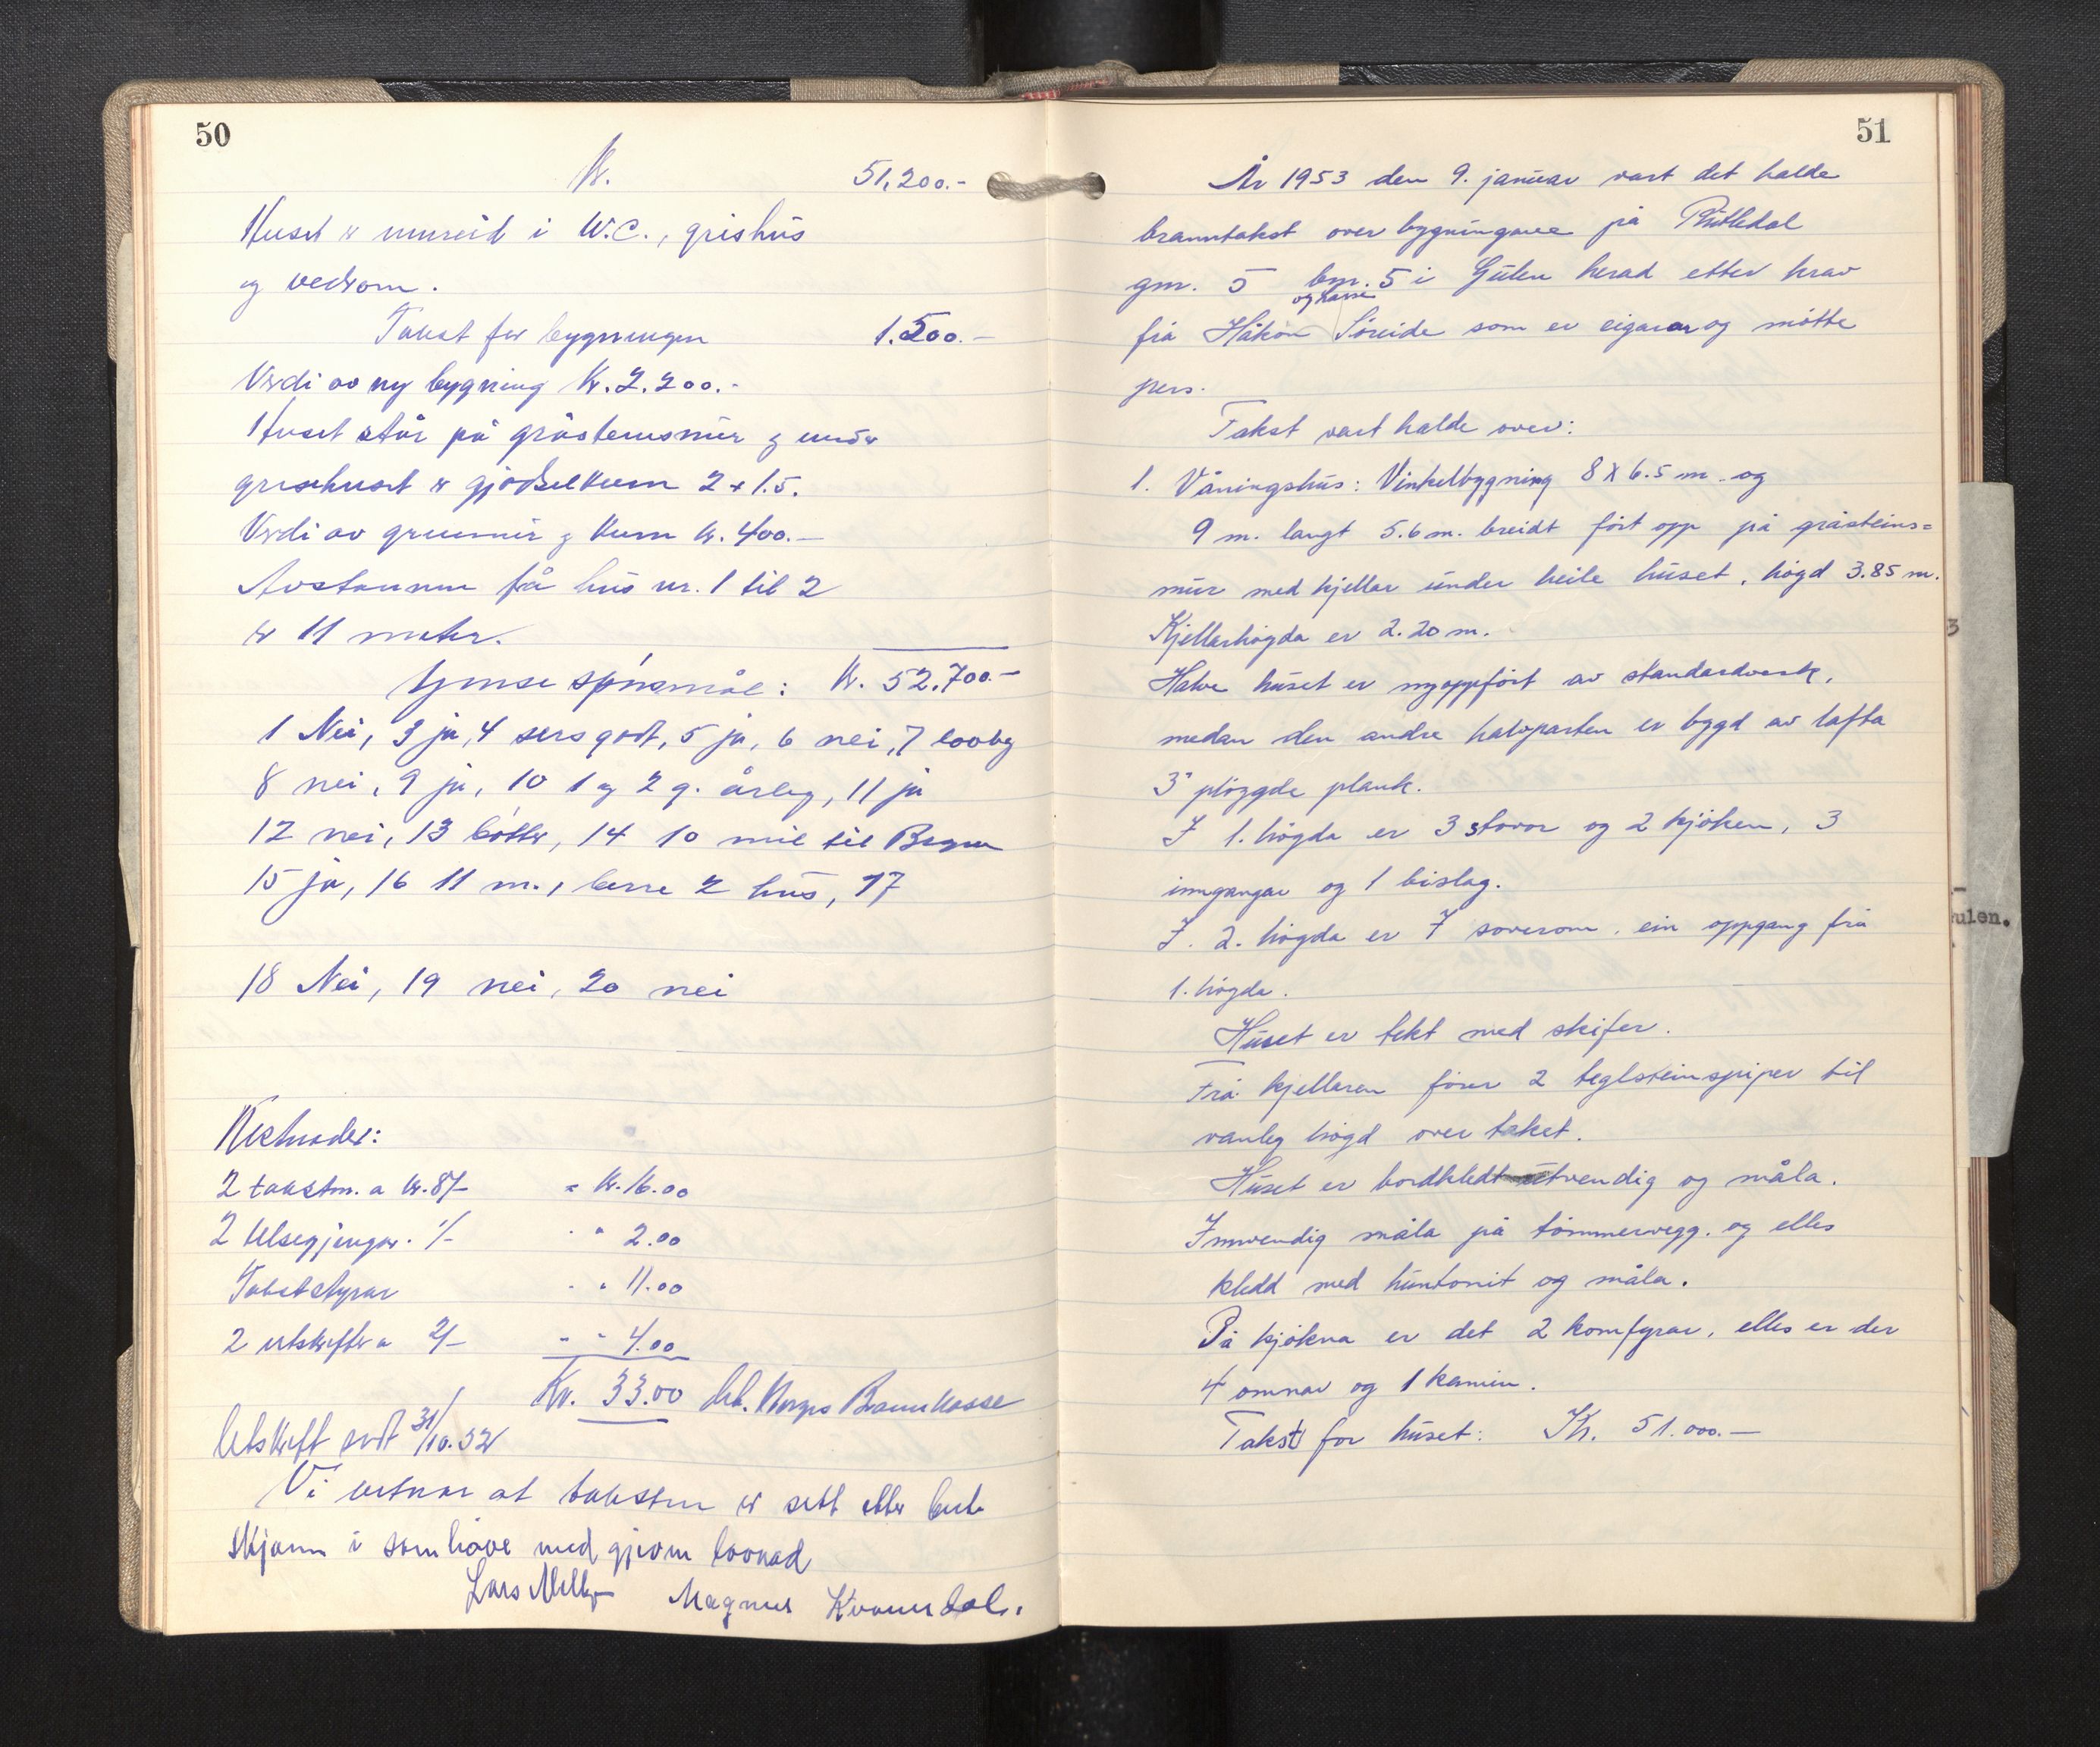 50
Kr. 51,200.-
Huset er innreid i W.C., grishus
og vedrom.
Takst for bygningen 1.500.-
Verdi av ny bygning Kr. 2.200.-
Huset står på gråsteinsmur og under
grisehuset er gjødselkum 2 x 1.5.
Verdi av grunnmur og kum kr. 400.-
Avstanden frå hus nr. 1 til 2
er 11 meter.
Ymse spörsmål: Kr. 52.700.-
1 Nei, 3 ja, 4 sers godt, 5 ja, 6 nei, 7 lovleg
8 nei, 9 ja, 10 1 og 2 g. årleg, 11 ja
12 nei, 13 bötter, 14 10 mil til Bergen
15 ja, 16 11 m., berre 2 hus, 17
18 Nei, 19 nei, 20 nei
Kostnader:
2 takstm. a kr. 8/- " kr. 16.00
2 1/- " " 2.00
Takststyrar " " 11.00
2 utskrifter a 2/- " " 4.00
Kr. 33.00 bet. Norges Brannkasse
Utskrift sendt 31/10.52
Vi vitnar at taksten er sett etter beste
skjønn i samhöve med gjevne lovnad
Lars Magnus Kvamsdal.
51
År 1953 den 9. januar vart det halde
branntakst over bygningane på Rutledal
gnr. 5 bnr. 5 i Gulen herad etter krav
og
frå Håkon Söreide som er eigarar og mötte
pers.
Takst vart halde over:
1. Våningshus: Vinkelbygning 8 X 6.5 m. og
9 m. langt 5.6 m. breidt fört opp på gråsteins=
mur med kjellar under heile huset, högd 3.85 m.
Kjellarhögda er 2.20 m.
Halve huset er nyoppfört av standardverk,
medan den andre halvparten er bygd av lafta
3" plöygde plank.
I 1. högda er 3 stovor og 2 kjöken, 3
inngangar og 1 bislag.
I. 2. högda er 7 soverom, ein oppgang frå
1. högda.
Huset er tekt med skifer.
Frå kjellaren förer 2 teglsteinspiper til
vanleg högd over taket.
Huset er bordkledt utvendig og måla.
Innvendig måla på tömmervegg. og elles
kledd med huntonit og måla.
På kjökna er det 2 komfyrar, elles er der
4 omnar og 1 kamin.
Takst for huset: Kr. 51.000.-
3
ulen.